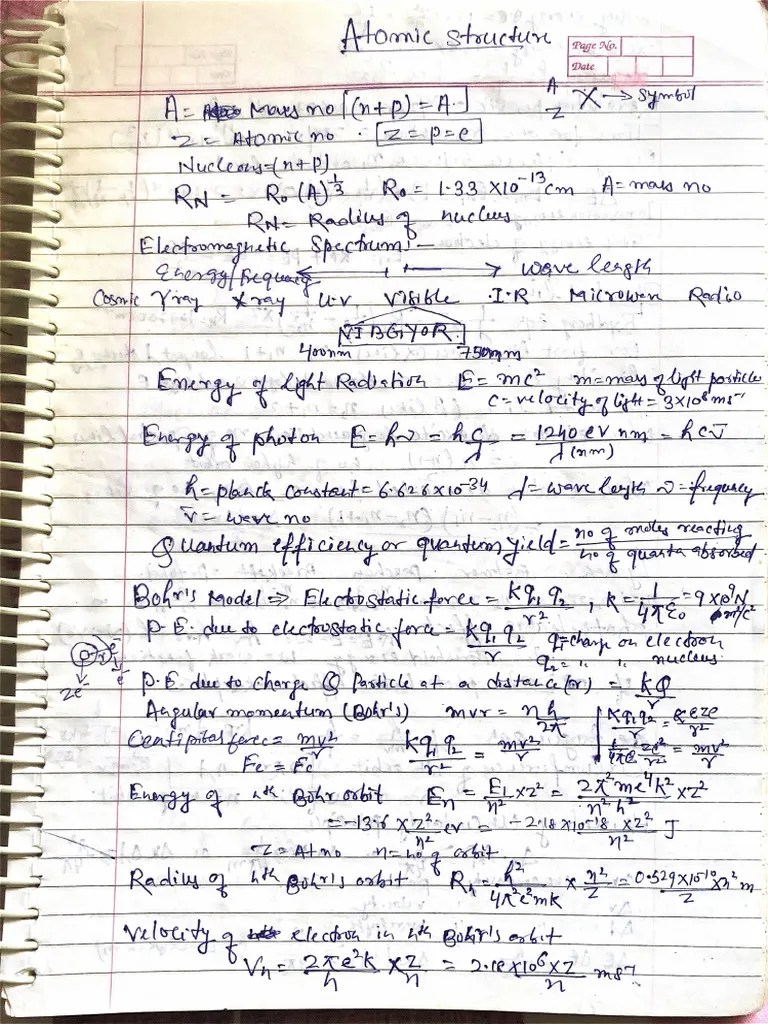 Atomic structure
Page No.
Date
A = Mass no [(n+p) = A.]
A
Z X → Symbol
Z = Atomic no . [Z = p = e]
Nucleons = (n+p)
R_N = R₀ (A)^1/3 R₀ = 1.33 × 10⁻¹³ cm A = mass no
R_N = Radius of nucleus
Electromagnetic Spectrum :-
Energy/frequency ← → wave length
Cosmic γ ray X ray U.V. Visible I.R Microwave Radio
VIBGYOR.
400nm 750nm
Energy of light Radiation E = mc² m = mass of light particle
c = velocity of light = 3×10⁸ ms⁻¹
Energy of photon E = hν = h c/λ = 1240 ev nm/λ(nm) = h c ν̄
h = planck constant = 6.626×10⁻³⁴ λ = wave length ν = frequency
ν̄ = wave no
Quantum efficiency or quantum yield = no of moles reacting/no of quanta absorbed
Bohr's Model ⇒ Electrostatic force = Kq₁q₂/r² , K = 1/4πε₀ = 9×10⁹ N m²/c²
P.E. due to electrostatic force = Kq₁q₂/r q₁ = charge on electron
q₂ = " " nucleus
P.E due to charge Q Particle at a distance (r) = KQ/r
Angular momentum (Bohr's) mvr = nh/2π
Centipital force = mv²/r Kq₁q₂/r² = mv²/r
Fe = Fc
Energy of nth Bohr orbit En = E₁/n² × Z² = 2π²me⁴k²/n²h² × Z²
= -13.6 × Z²/n² ev = -2.18×10⁻¹⁸ × Z²/n² J
Z = At no n = no of orbit
Radius of nth Bohr's orbit Rn = h²/4π²e²mk × n²/Z = 0.529×10⁻¹⁰ × n²/Z m
Velocity of electron in nth Bohr's orbit
Vn = 2πe²k/h × Z/n = 2.18×10⁶ × Z/n ms⁻¹